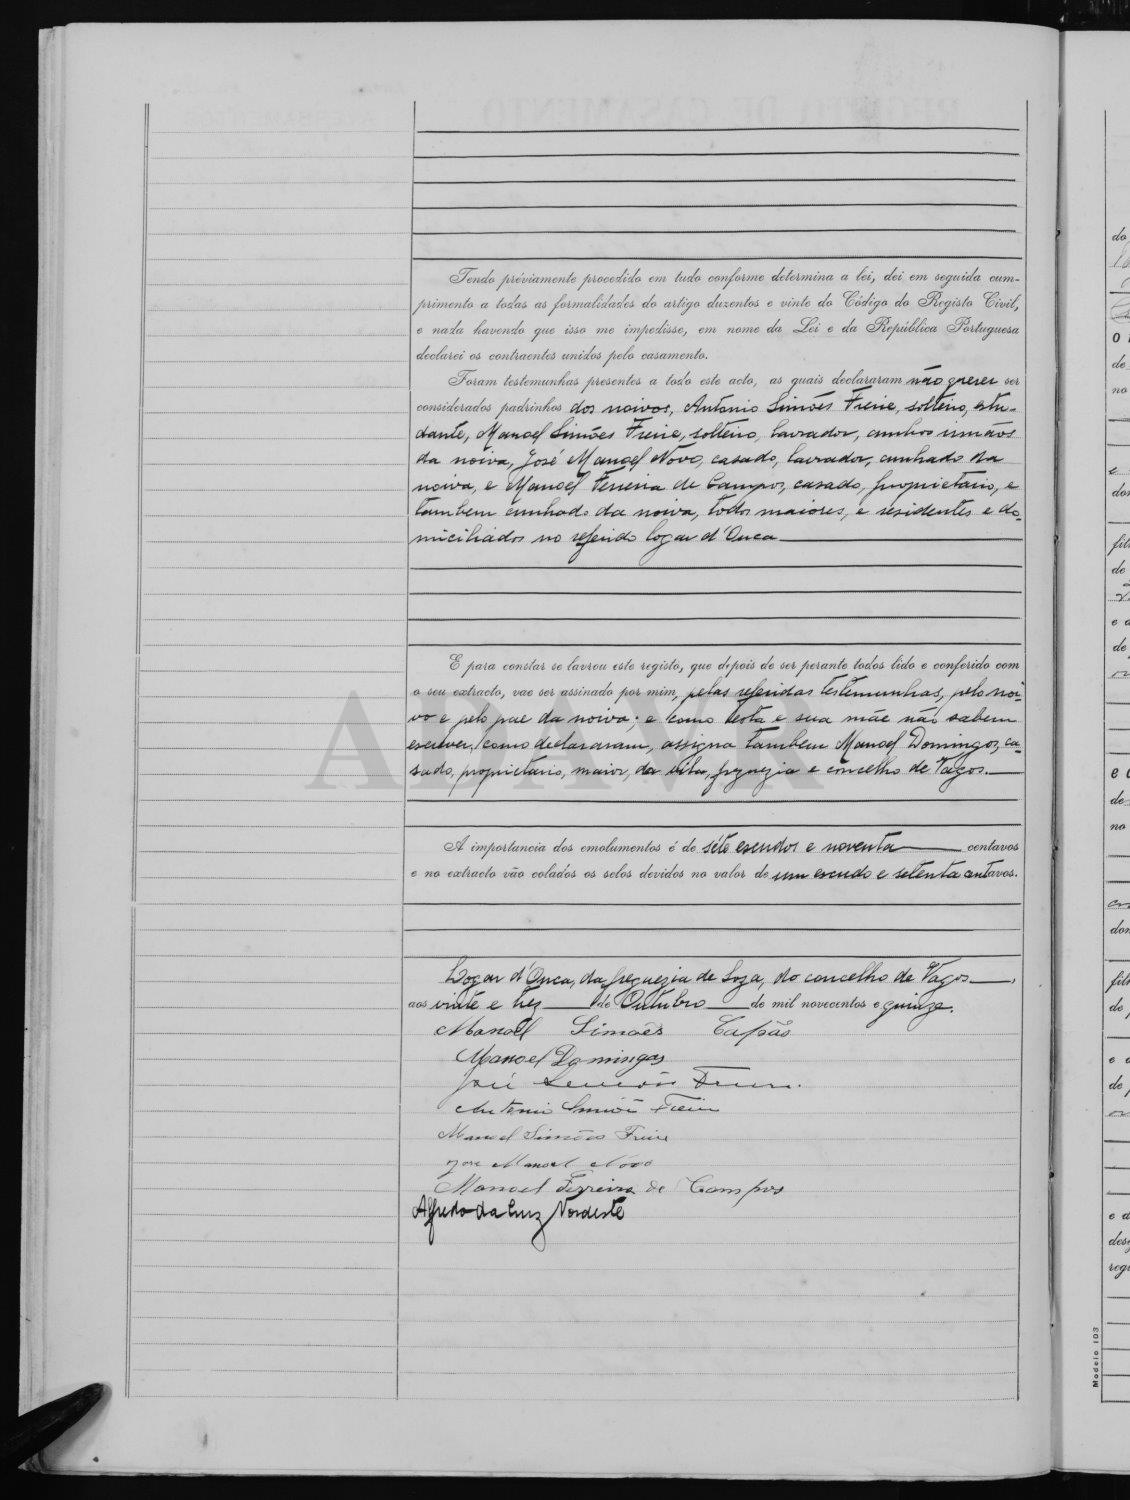 Tendo préviamente procedido em tudo conforme determina a lei, dei em seguida cum-
primento a todas as formalidades do artigo duzentos e vinte do Código do Registo Civil,
e nada havendo que isso me impedisse, em nome da Lei e da República Portuguesa
declarei os contraentes unidos pelo casamento.
Foram testemunhas presentes a todo este acto, as quais declararam não querer ser
considerados padrinhos dos noivos, Antonio Simões Freire, solteiro, estu-
dante, Manoel Simões Freire, solteiro, lavrador, ambos irmãos
da noiva, José Manoel Novo, casado, lavrador, cunhado da
noiva, e Manoel Ferreira de Campos, casado, proprietario, e
tambem cunhado da noiva, todos maiores, e residentes e do-
miciliados no referido logar d'Ouca
E para constar se lavrou este registo, que depois de ser perante todos lido e conferido com
o seu extracto, vae ser assinado por mim, pelas referidas testemunhas, pelo noi-
vo e pelo pae da noiva; e como esta e sua mãe não sabem
escrever, como declararam, assigna tambem Manoel Domingos, ca-
sado, proprietario, maior, da vila, freguezia e concelho de Vagos.
ADAVR
A importancia dos emolumentos é de séte escudos e noventa centavos
e no extracto vão colados os selos devidos no valor de um escudo e setenta centavos.
Logar d'Ouca, da freguezia de Soza, do concelho de Vagos,
aos vinte e trez de Outubro de mil novecentos e quinze.
Manoel Simões Capão
Manoel Domingos
José Simões Freire.
Antonio Simões Freire
Manoel Simões Freire
José Manoel Novo
Manoel Ferreira de Campos
Alfredo da Cruz Nordeste
Modelo 103